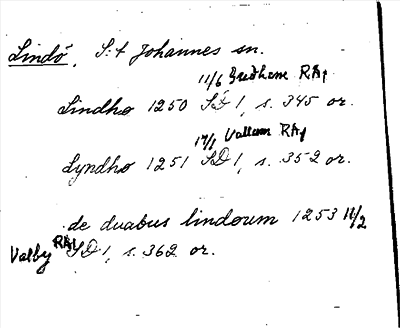 Lindö, S:t Johannes sn.
11/6 Gudhem RA1
Lindho 1250 SD 1, s. 345 or.
17/1 Vallum RA1
Lyndho 1251 SD 1, s. 352 or.
de duabus lindoum 1253 11/2
Valby RA1 SD 1, s. 362 or.